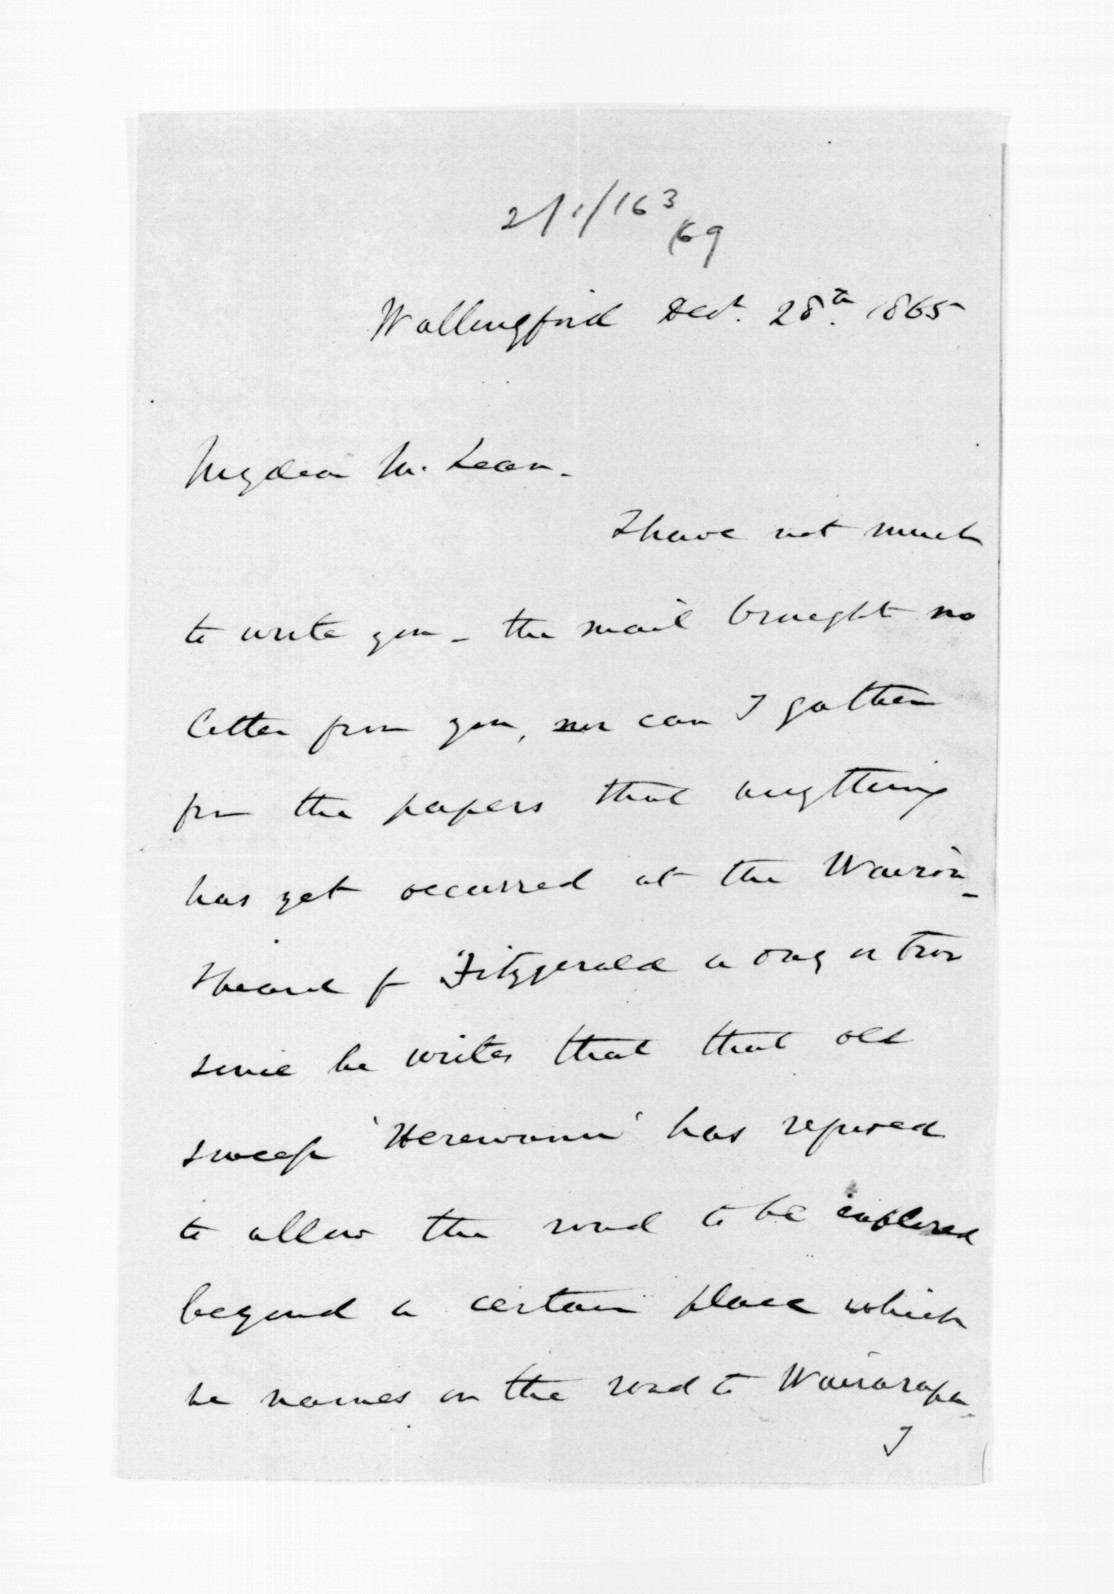 2/1/163
/69
Wallingford Decr. 28th. 1865
My dear McLean -
I have not much
to write you - the mail brought no
letter from you, nor can I gather
from the papers that anything
has yet occurred at the Wairoa -
I heard fr Fitzgerald a day or two
since he writes that that old
sweep 'Herewaru' has refused
to allow the road to be explored
beyond a certain place which
he names on the road to Wairarapa -
I